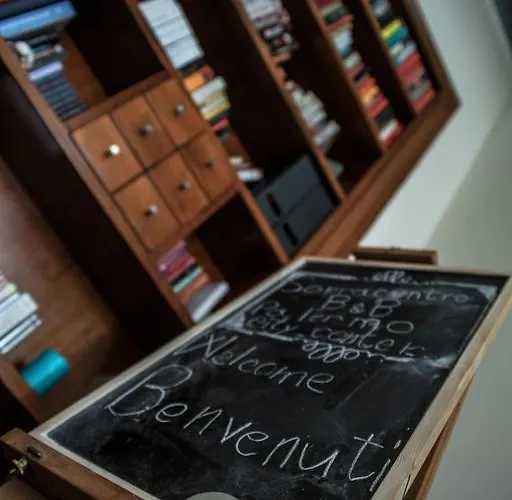 B&B
Palermo
City center
Welcome
Benvenuti